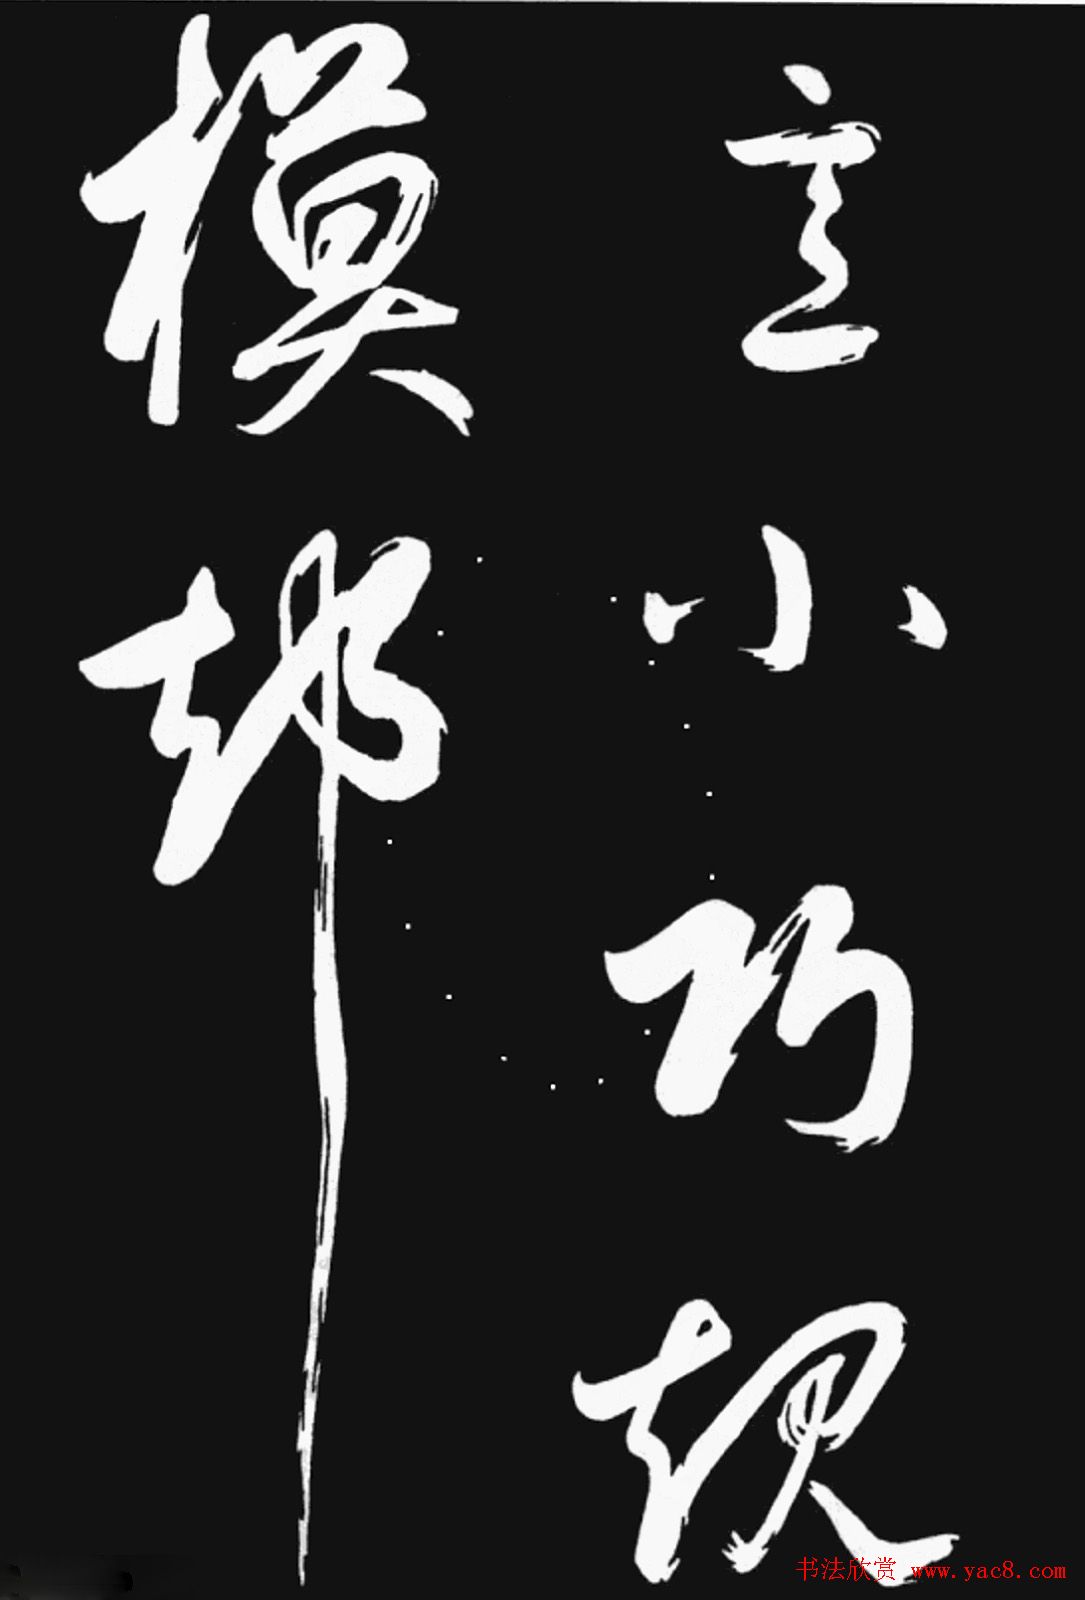 立小巧規
模都
书法欣赏 www.yac8.com